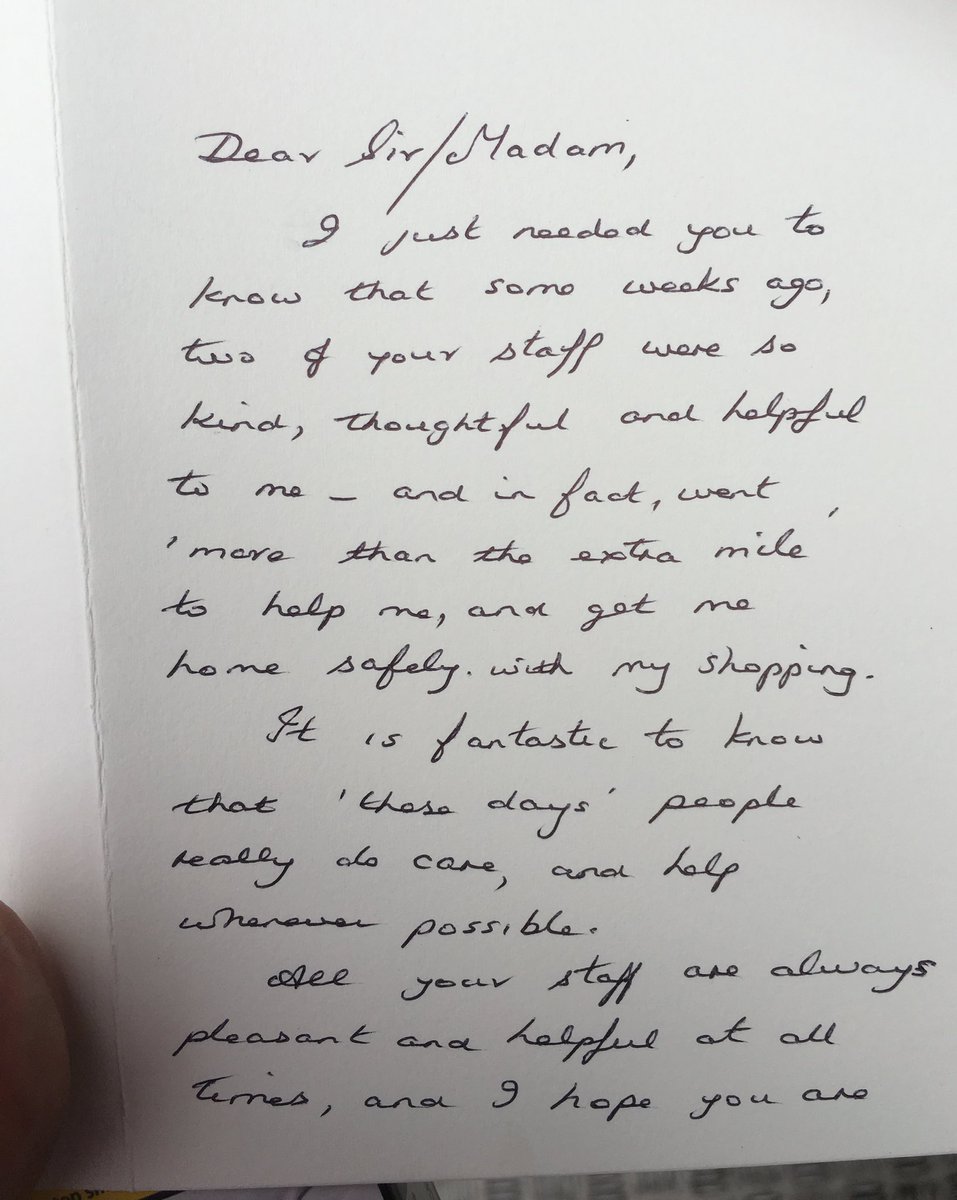 Dear Sir/Madam,
I just needed you to
know that some weeks ago,
two of your staff were so
kind, thoughtful and helpful
to me - and in fact, went
'more than the extra mile'
to help me, and get me
home safely. with my shopping.
It is fantastic to know
that 'these days' people
really do care, and help
wherever possible.
All your staff are always
pleasant and helpful at all
times, and I hope you are